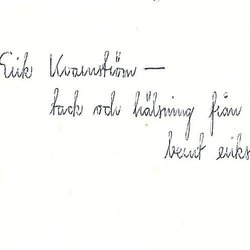 Erik Kvarnström —
tack och hälsning från
bernt eriks